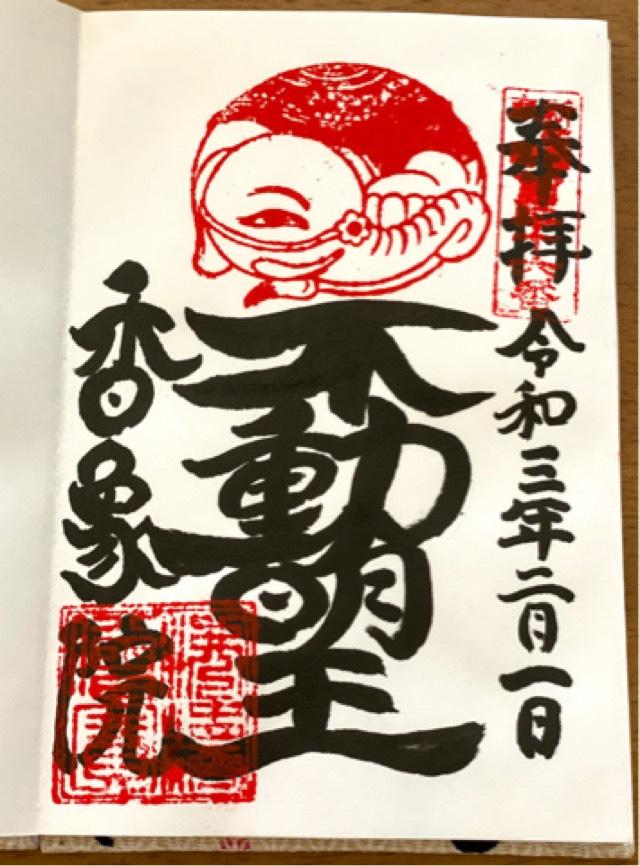 奉拝
令和三年二月一日
不動明王
香象院